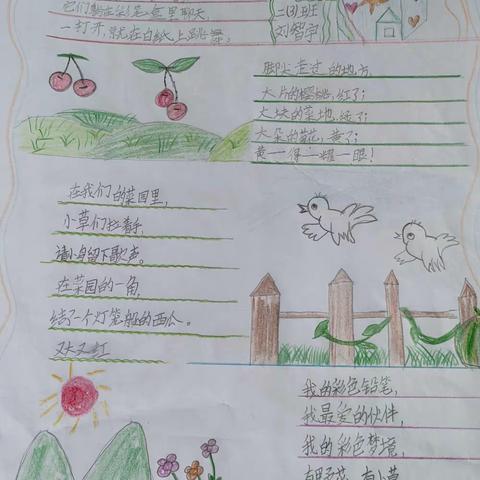 它们躺在彩色盒里聊天,
一打开,就在白纸上跳舞。
二(3)班
刘智宇
脚尖走过的地方,
大片的樱桃,红了;
大块的菜地,绿了;
大朵的菊花,黄了;
黄——得——耀——眼!
在我们的菜园里,
小草们拉着手,
请小鸟留下歌声。
在菜园的一角,
结了一个灯笼般的西瓜。
又大又红
我的彩色铅笔,
我最爱的伙伴,
我的彩色梦境,
有野花,有小草